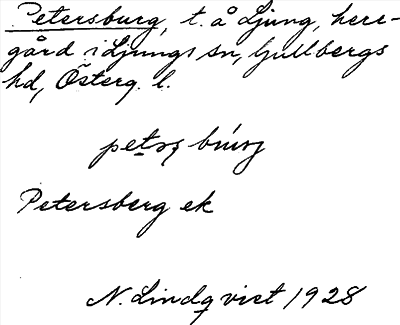 Petersburg, t. å Ljung, herre-
gård i Ljungs sn, Gullbergs
hd, Österg. l.
Petersberg ek
N. Lindqvist 1928